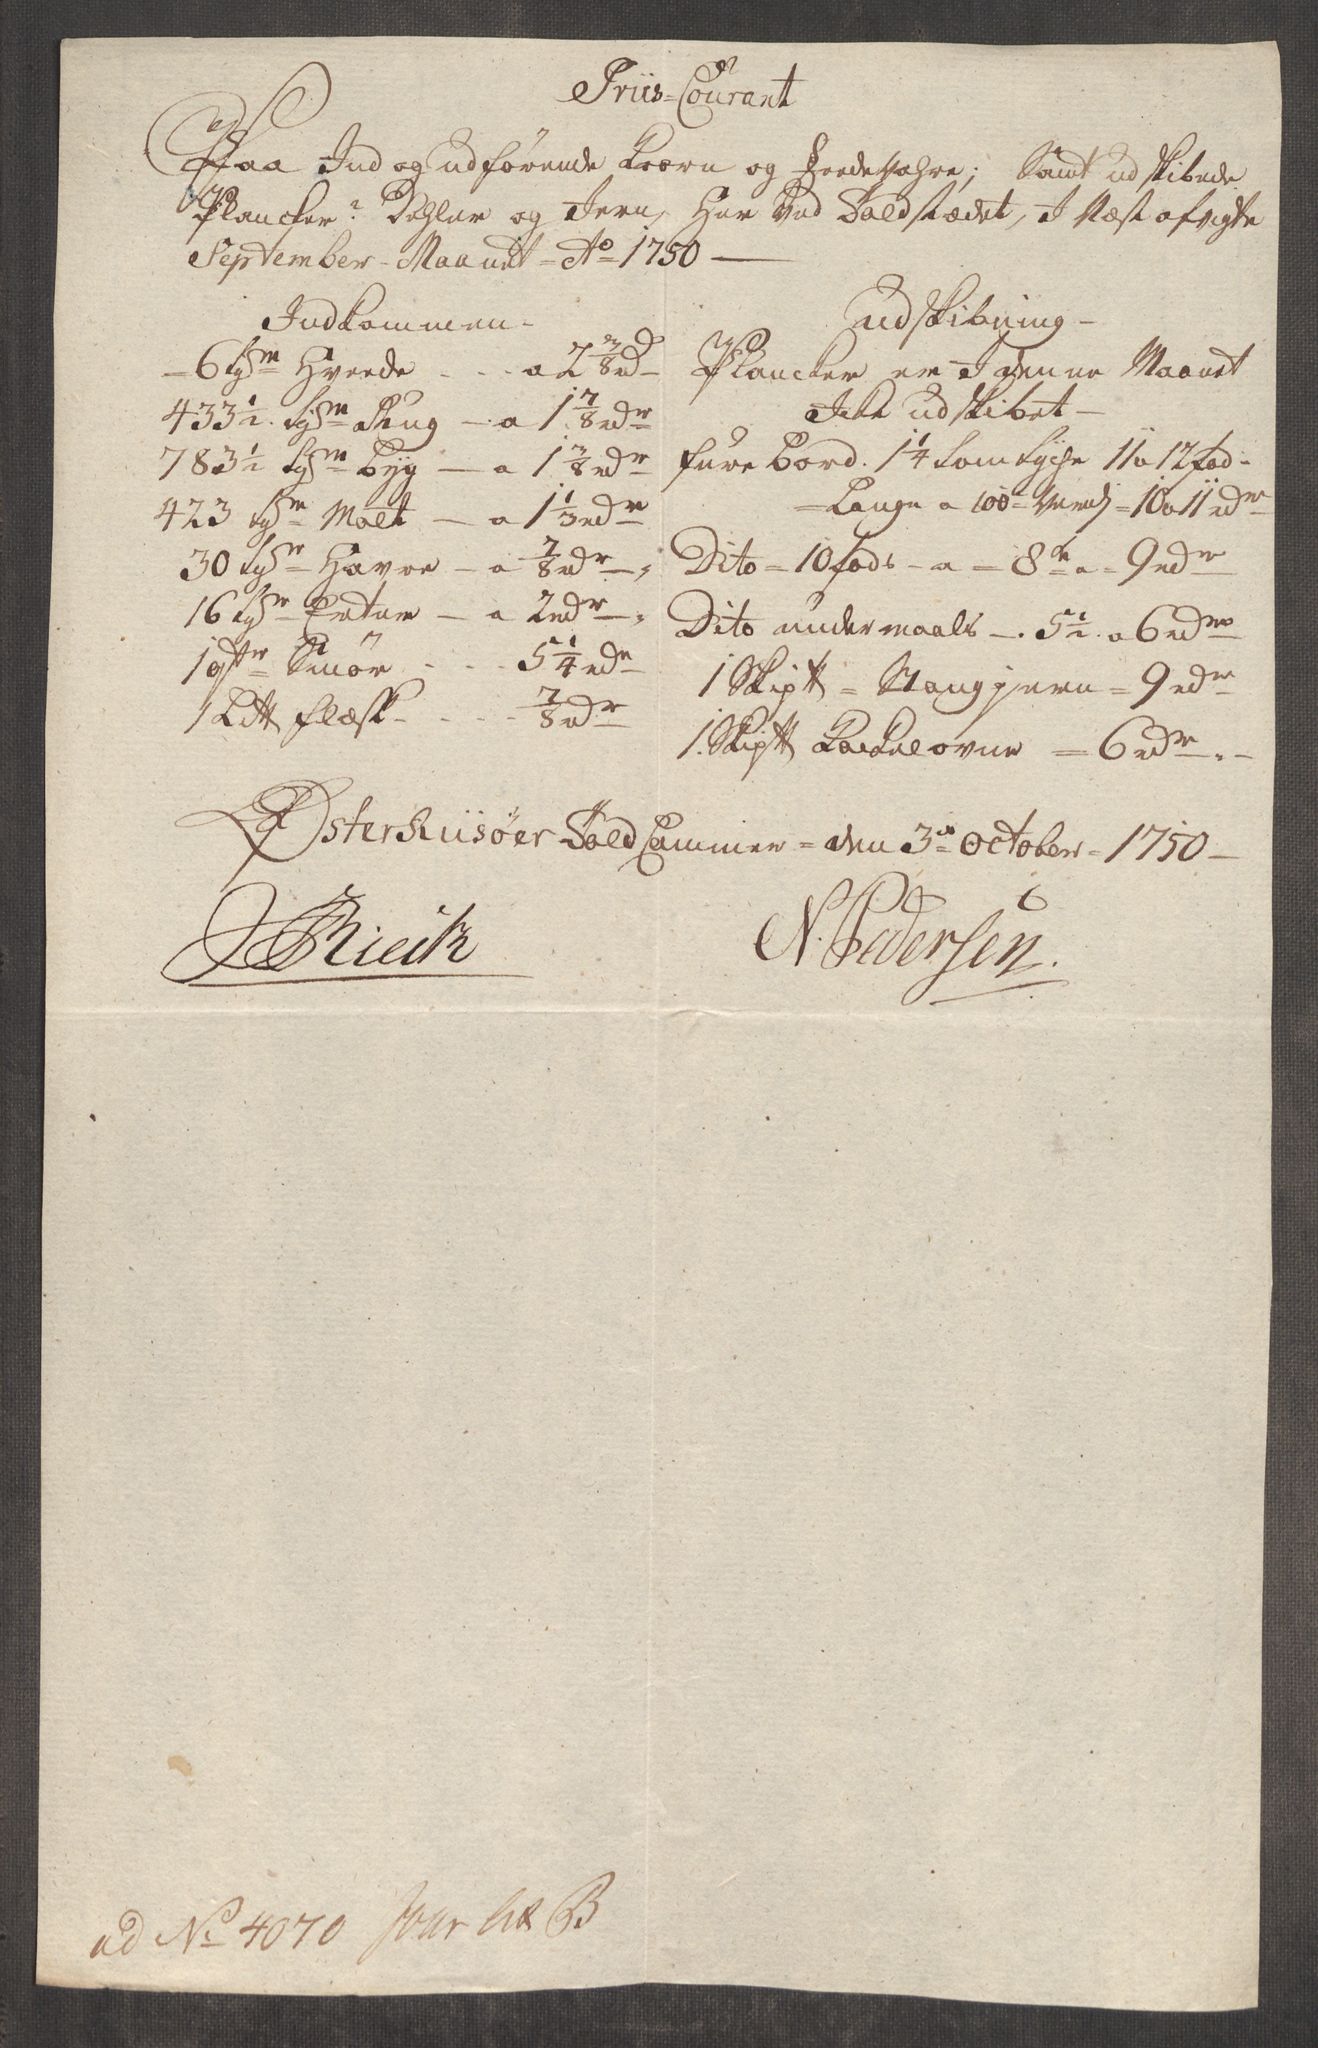 Priis-Courant
Paa Ind og udførende Korn og Fædevahre; Samt udskibede
Plancker, Dehler og Jern, Her ved Toldstædet, I Næst afvigte
September-Maanet = Ao 1750 —
Indkommen -
6 tønr Hvede - - - a 2 3/8 rdr
433 1/2 tønr Rug — a 1 7/8 rdr
783 1/2 tønr Byg — a 1 3/8 rdr
423 tønr Malt — a 1 1/3 rdr
30 tønr Havre — a 7/8 rdr
16 tønr Erter — a 2 rdr
1 Smør - - - 5 1/4 rdr
1 L℔ Flæsk - - - 7/8 rdr
Udskibning -
Plancker er I denne Maanet
Icke udskibet —
Fure Bord. 1 1/4 tom tycke 11 a 12 fod -
= Lange a 100 = 10 a 11 rdr
Dito = 10 fods - a = 8te a = 9 rdr
Dito undermaals —. 5 1/2. a 6 rdr
1 Skip℔ = Stangjern = 9 rdr
1. Skip℔ Kackelovne = 6 rdr
Østerriisøer Told Cammer = den 3de October = 1750 —
N. Pedersen.
ad No 4070 Jour Lit B